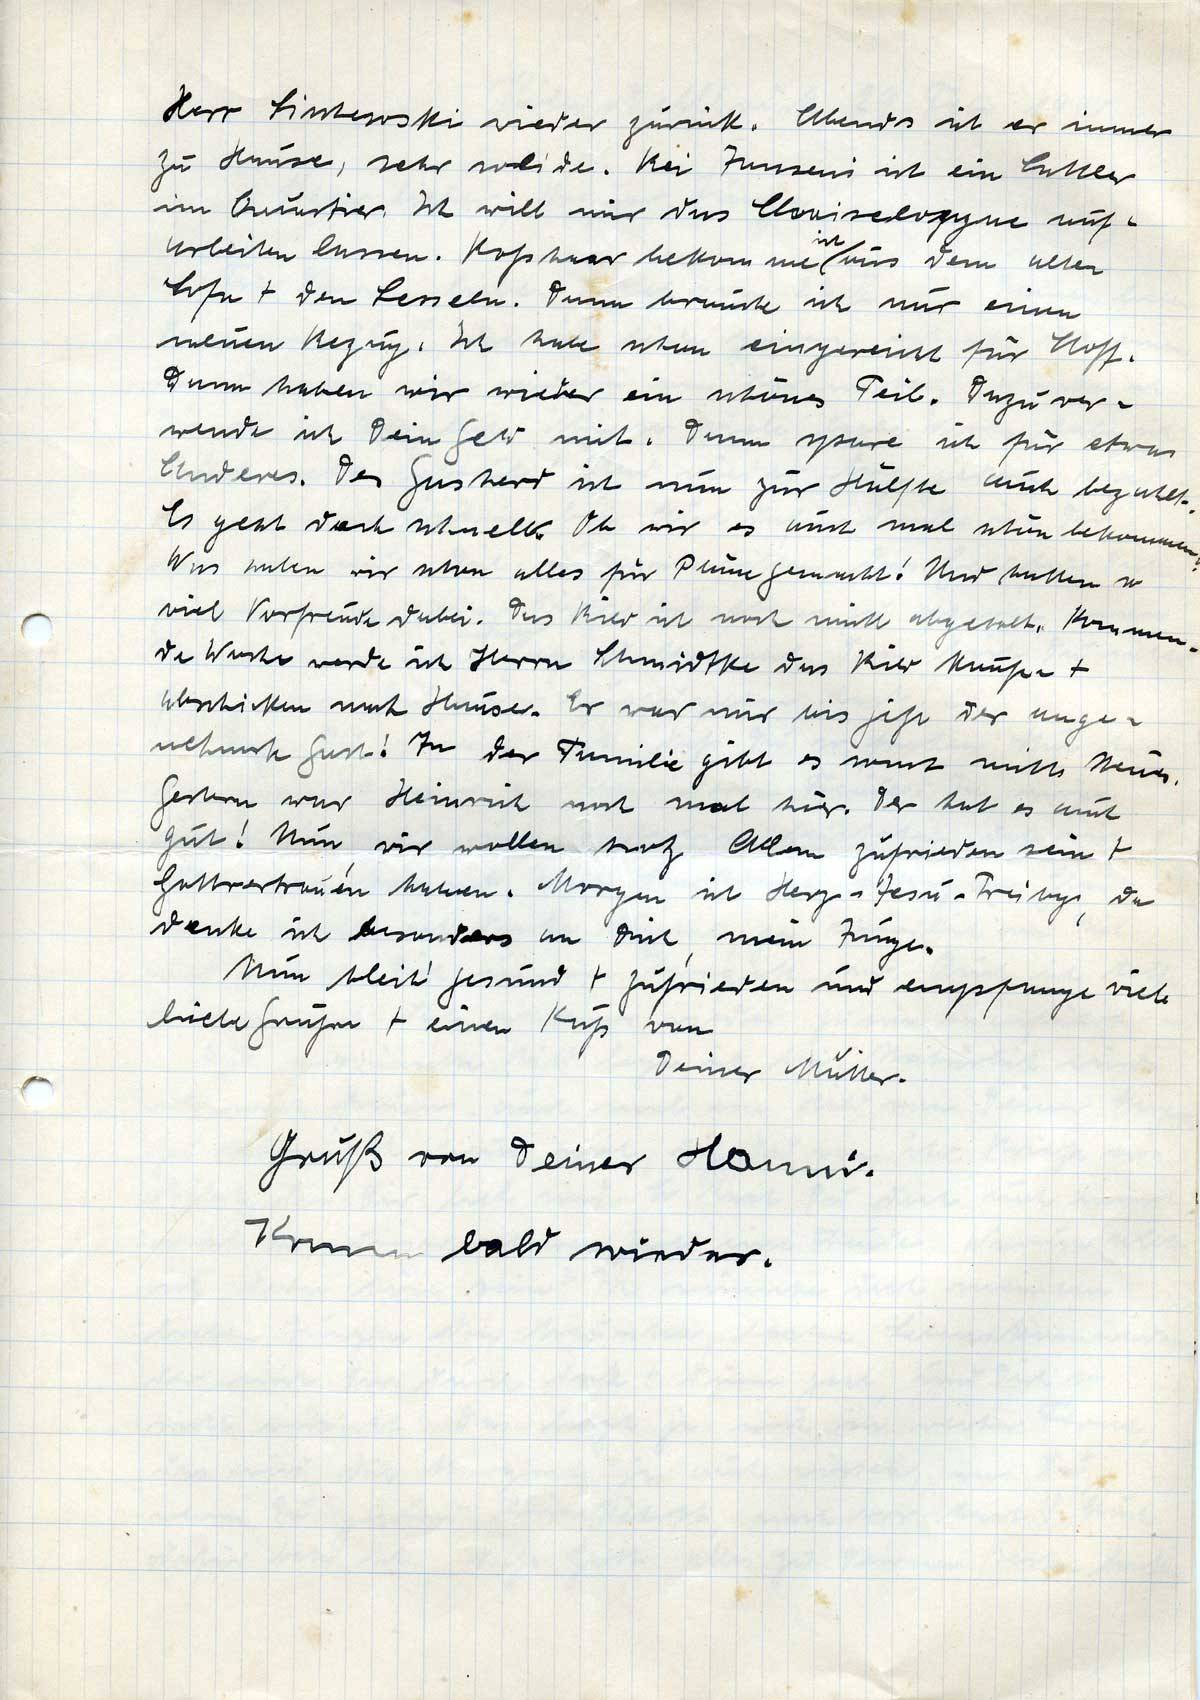 Herr Sintkowski wieder zurück. Abends ist er immer
zu Hause, sehr solide. Bei Jansens ist ein Sattler
im Quartier. Ich will mir das Chaiselongue auf-
arbeiten lassen. Roßhaar bekomme ich aus dem alten
Sofa + den Sesseln. Dann brauche ich nur einen
neuen Bezug. Ich habe schon eingereicht für Stoff.
Dann haben wir wieder ein schönes Teil. Dazu ver-
wende ich Dein Geld mit. Dann spare ich für etwas
Anderes. Der Gasherd ist nun zur Hälfte auch bezahlt.
Es geht doch schnell. Ob wir es auch mal schön bekommen?
Was haben wir schon alles für Pläne gemacht! Und hatten so
viel Vorfreude dabei. Das Bild ist noch nicht abgeholt. Kommen-
de Woche werde ich Herrn Schmidtke das Bild kaufen +
abschicken nach Hause. Er war mir bis jetzt der ange-
nehmste Gast! In der Familie gibt es sonst nichts Neues.
Gestern war Heinrich noch mal hier. Der hat es auch
gut! Nun, wir wollen trotz Allem zufrieden sein +
Gottvertrauen haben. Morgen ist Herz-Jesu-Freitag, da
denke ich besonders an Dich, mein Junge.
Nun bleib' gesund + zufrieden und empfange viele
liebe Grüße + einen Kuß von
Deiner Mutter.
Gruß von Deiner Hanni.
Komm bald wieder.